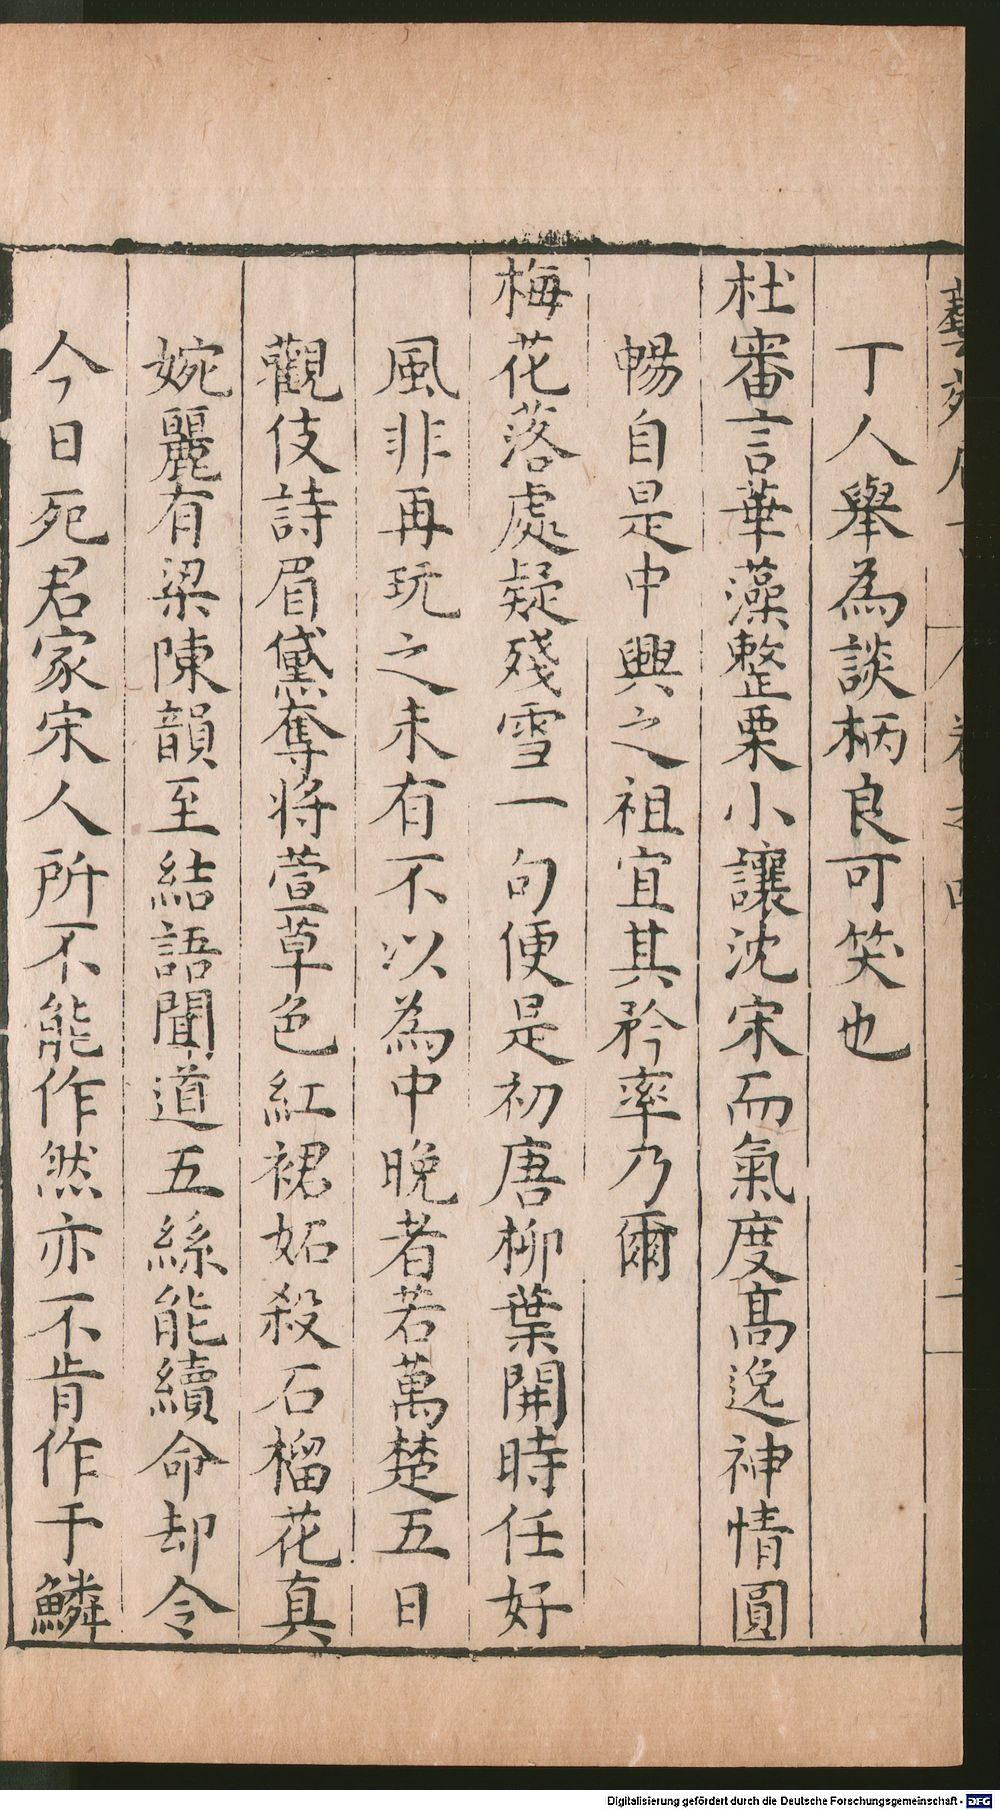 藝苑巵言 卷之四
丁人舉為談柄良可笑也
杜審言華藻整栗小讓沈宋而氣度髙逸神情圓
暢自是中興之祖宜其矜率乃爾
梅花落處疑殘雪一句便是初唐柳葉開時任好
風非再玩之未有不以為中晚者若萬楚五日
觀伎詩眉黛奪將萱草色紅裙妬殺石榴花真
婉麗有梁陳韻至結語聞道五絲能續命却令
今日死君家宋人所不能作然亦不肯作于鱗
Digitalisierung gefördert durch die Deutsche Forschungsgemeinschaft - DFG